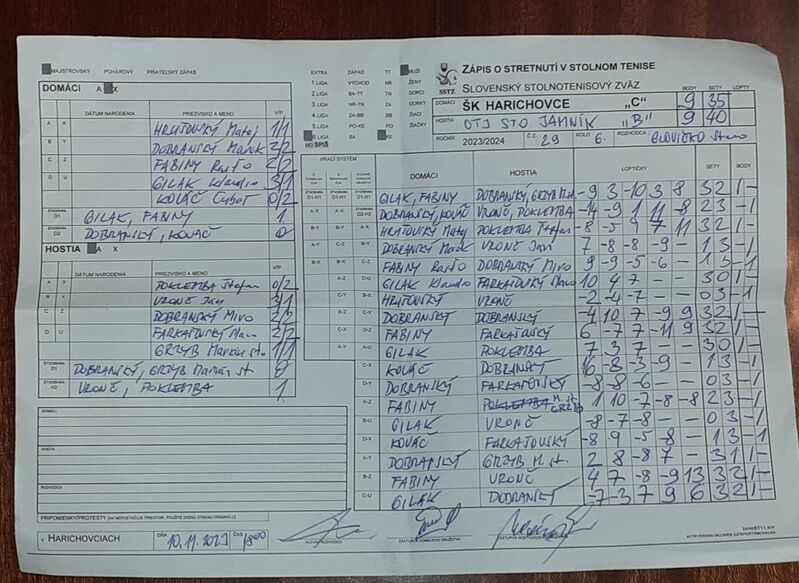 MAJSTROVSKÝ POHÁROVÝ PRIATEĽSKÝ ZÁPAS
DOMÁCI A X
DÁTUM NARODENIA PRIEZVISKO A MENO V/P
A X HRUTOVSKÝ Matej 1/1
B Y DOBRANSKÝ Marek 2/2
C Z FABINY Rasťo 2/2
D U GILAK Klaudio 3/1
KOVÁČ Cyboť 0/2
ŠTVORHRA D1 GILAK, FABINY 1
ŠTVORHRA D2 DOBRANSKÝ, KOVÁČ 0
HOSTIA A X
DÁTUM NARODENIA PRIEZVISKO A MENO V/P
A X POKLEMBA Štefan 0/2
B Y VRONČ Ján 3/1
C Z DOBRANSKÝ Miro 2/2
D U FARKAŠOVSKÝ 2/2
GRZYB Marián st. 1/1
DOBRANSKÝ, GRZYB Marián st 0
ŠTVORHRA H2 VRONČ, POKLEMBA 1
DOMÁCI:
HOSTIA:
ROZHODCA
PRIPOMIENKY/PROTESTY (AK NEPOSTAČUJE PRIESTOR, POUŽITE ZADNÚ STRANU ORIGINÁLU)
V HARICHOVCIACH DŇA 10.11.2023 ČAS 1800
EXTRA ZÁPAD TT MUŽI
1.LIGA VÝCHOD NR ŽENY
2.LIGA BA-TT TN DORCI
3.LIGA NR-TN ZA DORKY
4.LIGA ZA-BB BB ŽIACI
5.LIGA PO-KE PO ŽIAČKY
6.LIGA BA KE
MO SPIŠ
SSTZ
ZÁPIS O STRETNUTÍ V STOLNOM TENISE
SLOVENSKÝ STOLNOTENISOVÝ ZVÄZ
BODY SETY LOPTY
DOMÁCI ŠK HARICHOVCE „C" 9 35
HOSTIA OTJ STO JAMNÍK „B" 9 40
ROČNÍK 2023/2024 Č.Z. 29 KOLO 6. ROZHODCA
HRACÍ SYSTÉM DOMÁCI HOSTIA LOPTIČKY SETY BODY
D1-H1 D1-H1 D1-H1 GILAK, FABINY DOBRANSKÝ, GRZYB M.st. -9 3 -10 3 8 3 2 1 -
A-X A-X D2-H2 DOBRANSKÝ, KOVÁČ VRONČ, POKLEMBA -14 -9 1 11 -8 2 3 - 1
B-Y B-Y A-X HRUTOVSKÝ Matej POKLEMBA Štefan -8 -5 9 7 11 3 2 1 -
A-Y C-Z B-Y DOBRANSKÝ Marek VRONČ Ján 7 -8 -8 -9 - 1 3 - 1
B-X B-X C-Z FABINY Rasťo DOBRANSKÝ Miro 9 -9 -5 -6 - 1 3 - 1
A-Z D-U GILAK Klaudio FARKAŠOVSKÝ 10 4 7 - - 3 0 1 -
C-Y B-X HRUTOVSKÝ VRONČ -2 -4 -7 - - 0 3 - 1
B-Z C-Y DOBRANSKÝ DOBRANSKÝ -4 10 7 -9 9 3 2 1 -
C-X D-Z FABINY FARKAŠOVSKÝ 6 -7 7 -11 9 3 2 1 -
A-Y A-U GILAK POKLEMBA 7 3 7 - - 3 0 1 -
C-X KOVÁČ DOBRANSKÝ 16 -8 -3 -9 - 1 3 - 1
D-Y DOBRANSKÝ FARKAŠOVSKÝ -8 -8 -6 - - 0 3 - 1
A-Z FABINY POKLEMBA M. st. GRZYB 1 10 -7 -8 -8 2 3 - 1
B-U GILAK VRONČ -8 -7 -8 - - 0 3 - 1
D-X KOVÁČ FARKAŠOVSKÝ -8 9 -5 -8 - 1 3 - 1
A-Y DOBRANSKÝ GRZYB M. st. 2 8 -8 7 - 3 1 1 -
B-Z FABINY VRONČ 4 7 -8 -9 13 3 2 1 -
C-U GILAK DOBRANSKÝ -7 -3 7 9 6 3 2 1 -
HLAVNÝ ROZHODCA ZÁSTUPCA DOMÁCEHO DRUŽSTVA ZÁSTUPCA HOSŤUJÚCEHO DRUŽSTVA